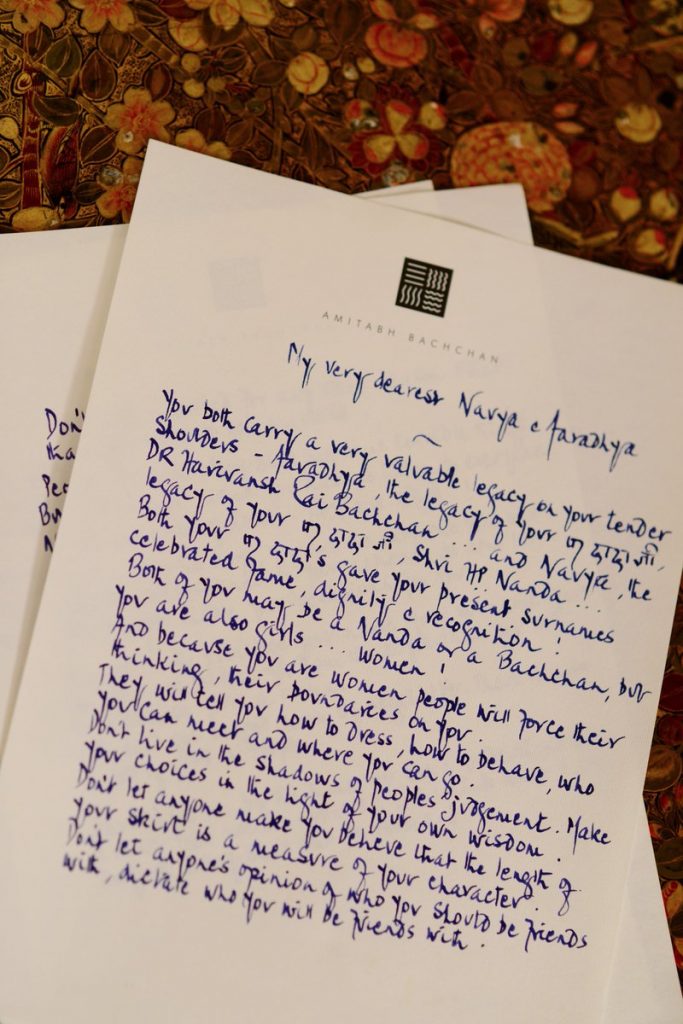 AMITABH BACHCHAN
My very dearest Navya & Aaradhya
~
You both carry a very valuable legacy on your tender
shoulders - Aaradhya, the legacy of your दादाजी,
DR Harivansh Rai Bachchan ... and Navya, the
legacy of your दादाजी, Shri HP Nanda ...
Both your दादाजी's gave your present surnames
celebrated fame, dignity & recognition!
Both of you may be a Nanda or a Bachchan, but
you are also girls ... women!
And because you are women people will force their
thinking, their boundaries on you.
They will tell you how to dress, how to behave, who
you can meet and where you can go.
Don't live in the shadows of peoples judgement. Make
your choices in the light of your own wisdom.
Don't let anyone make you believe that the length of
your skirt is a measure of your character.
Don't let anyone's opinion of who you should be friends
with, dictate who you will be friends with.
Don't